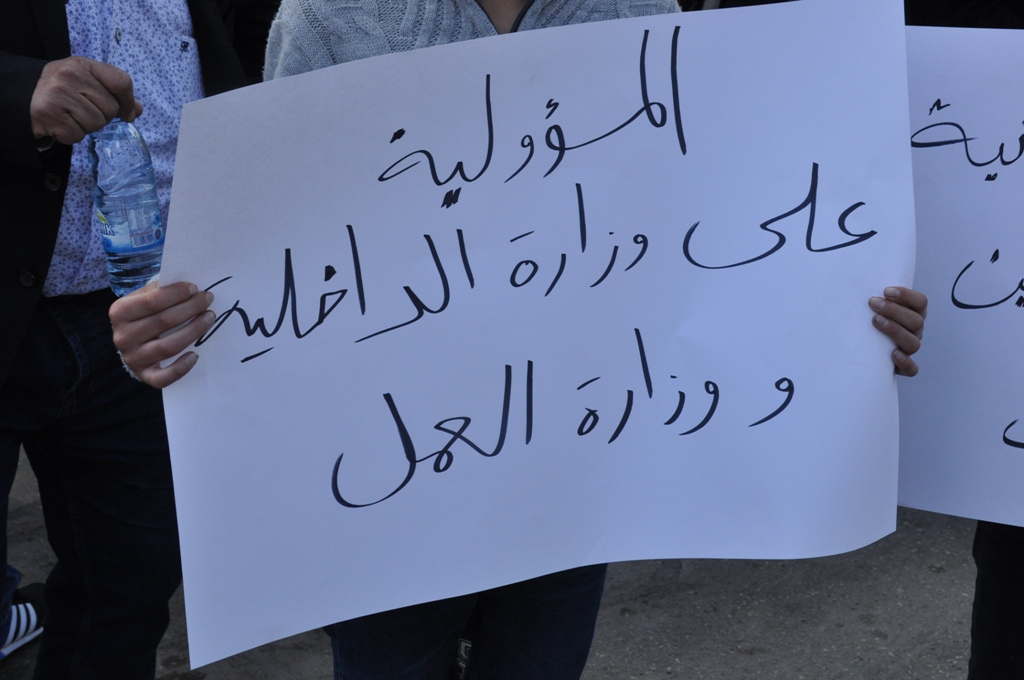 المسؤولية
على وزارة الداخلية
و وزارة العمل